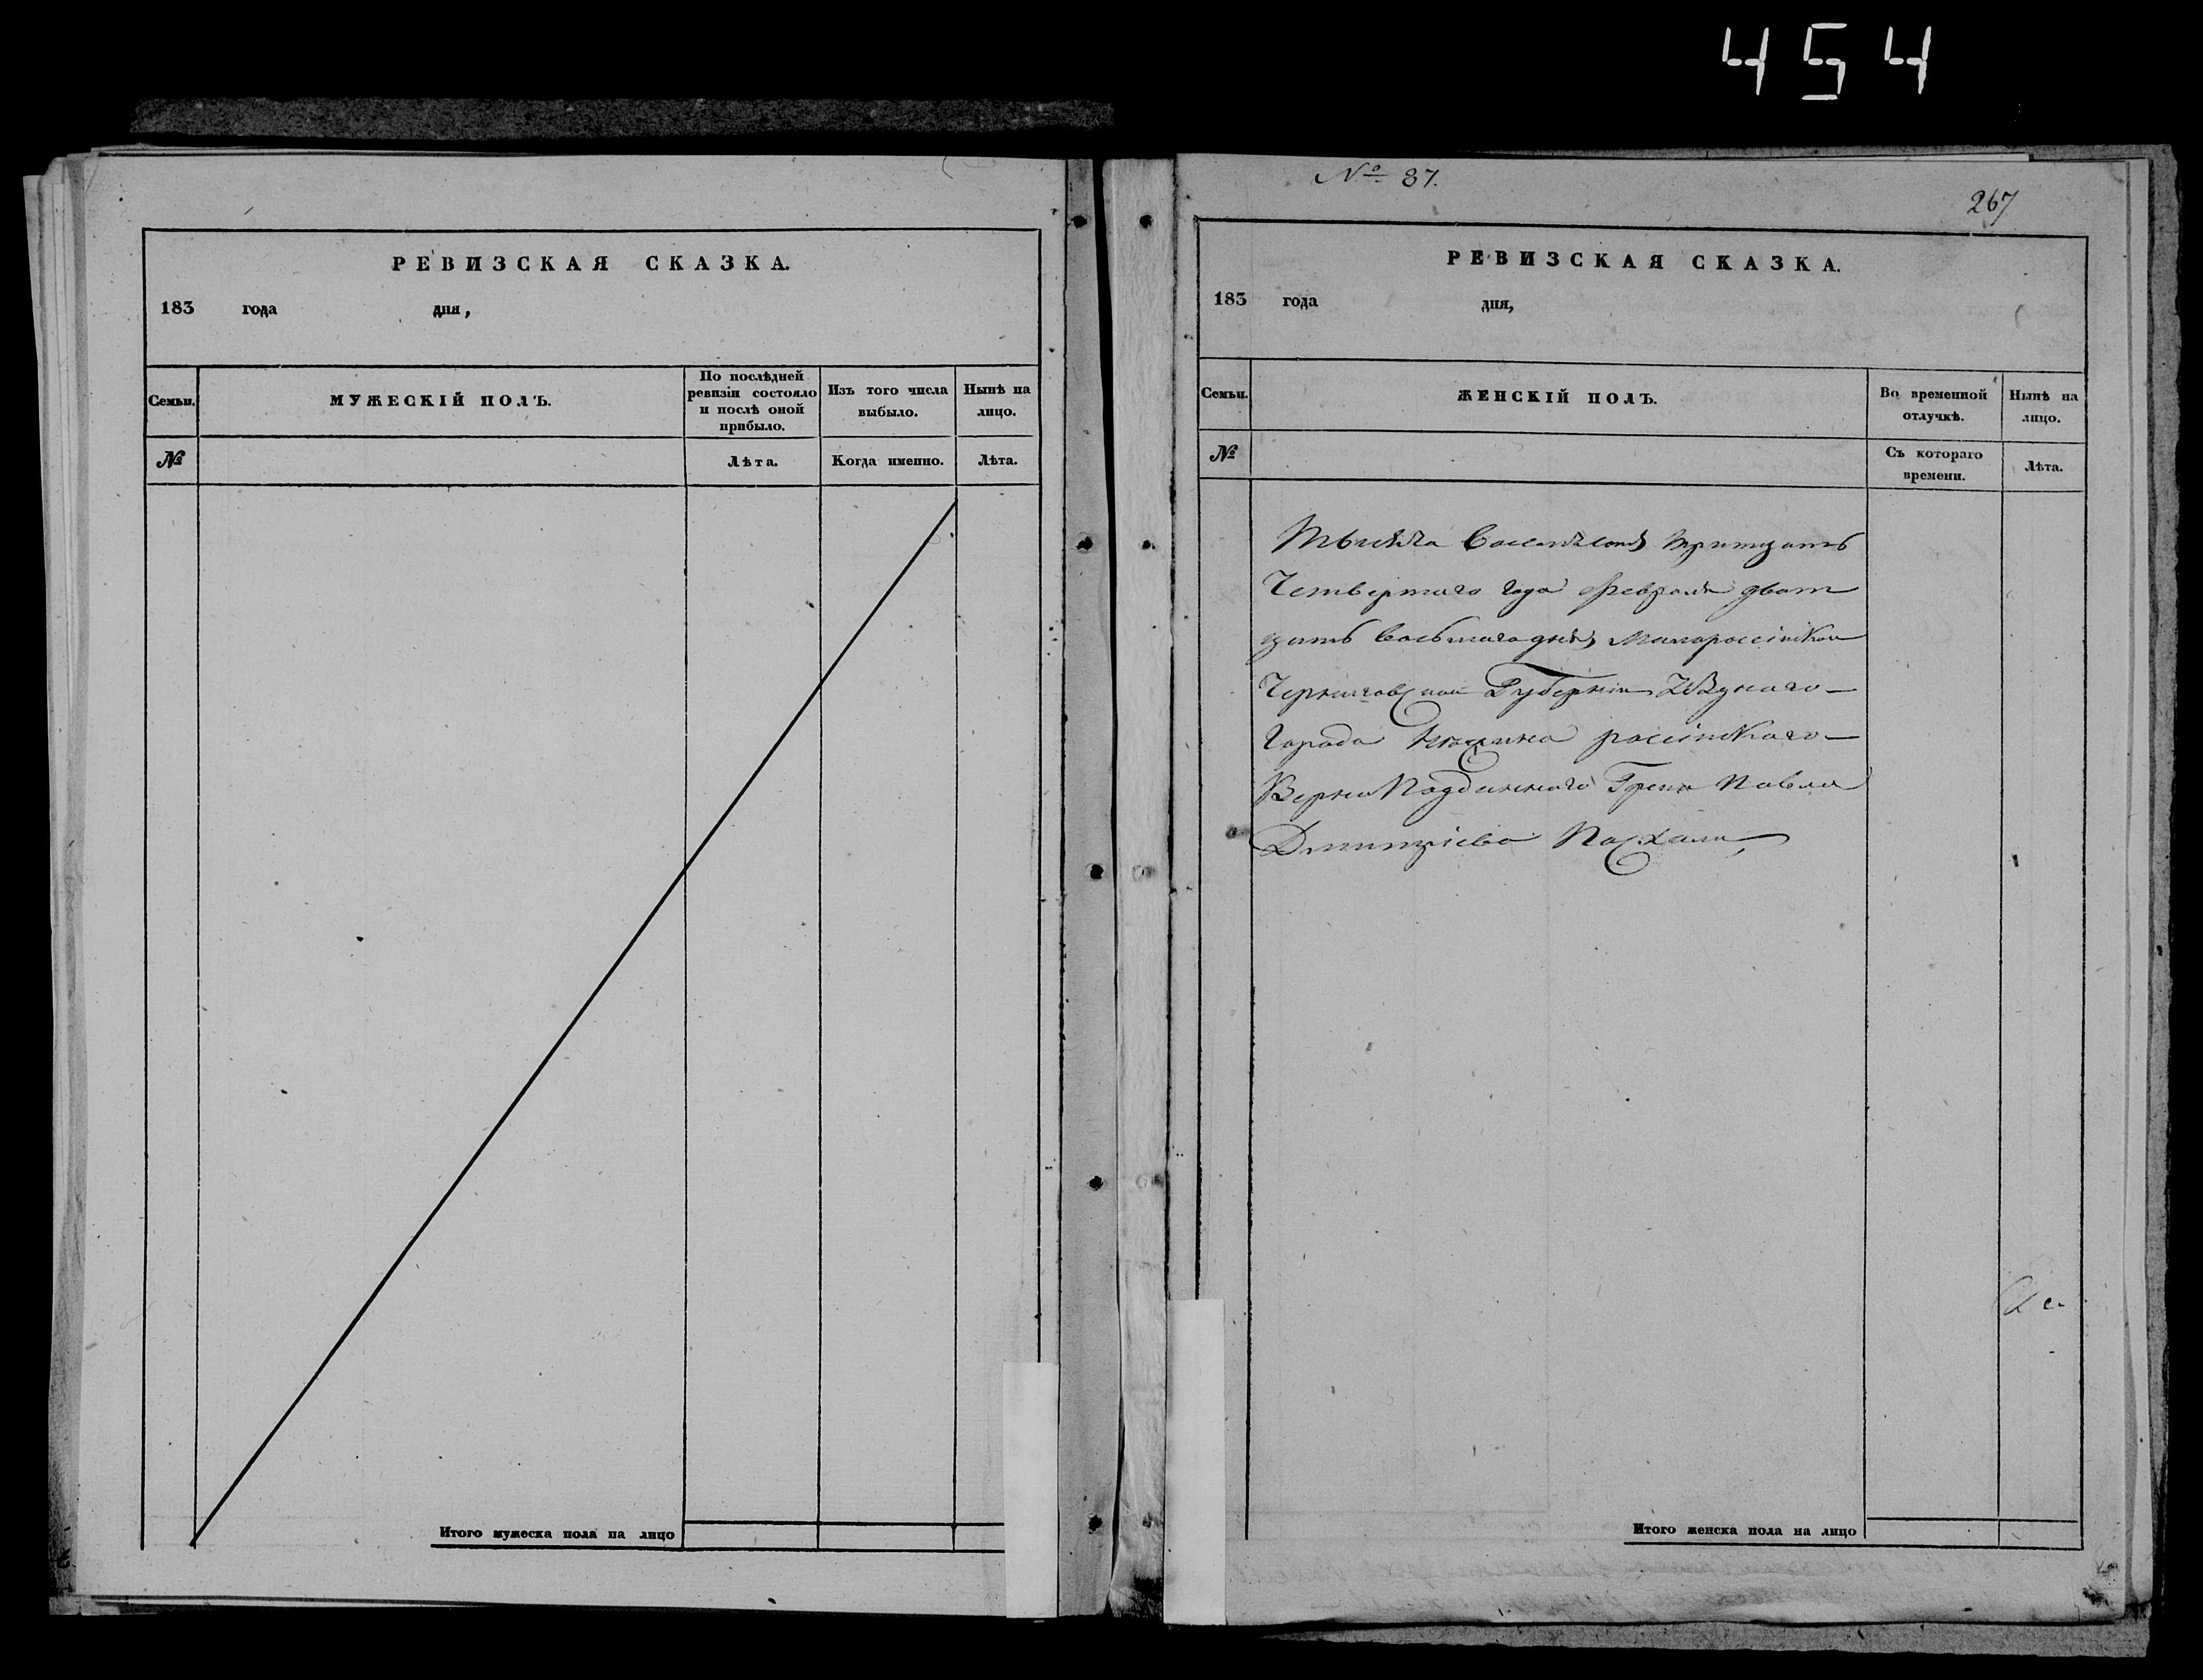 454
РЕВИЗСКАЯ СКАЗКА.
183 года дня,
Семьи.
МУЖЕСКІЙ ПОЛЪ.
По послѣдней ревизіи состояло и послѣ оной прибыло.
Изъ того числа выбыло.
Нынѣ на лицо.
№
Лѣта.
Когда именно.
Лѣта.
Итого мужеска пола на лицо
№ 87.
267
РЕВИЗСКАЯ СКАЗКА.
183 года дня,
Семьи.
ЖЕНСКІЙ ПОЛЪ.
Во временной отлучкѣ.
Нынѣ на лицо.
№
Съ котораго времени.
Лѣта.
Тысяча восемьсотъ тритцать
Четвертаго года февраля дват
цать восьмаго дня Малоросійской
Черниговской Губерніи уѣзднаго
Города Нежина російскаго
Верноподданнаго Грека Павла
Дмитріева Пасхали
Итого женска пола на лицо